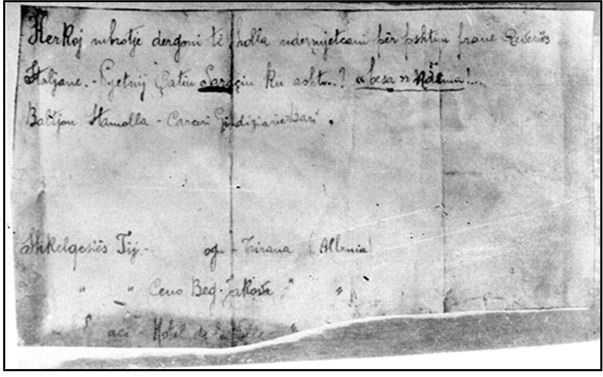 Her Koj mbrotje dergoni të holla ndermjetcani për pshtun prane Qeveriës
Italjane. - Pyetnij Gatin Saraqin ku ashtu..? « besa » Ndema!...
Stamolla - Carceri Giudiziarie Bari.
Shkelqesiës Tij - ogu - Tirana (Albania)
" " Ceno Beg-Jakova " "
aci - Hotel de "